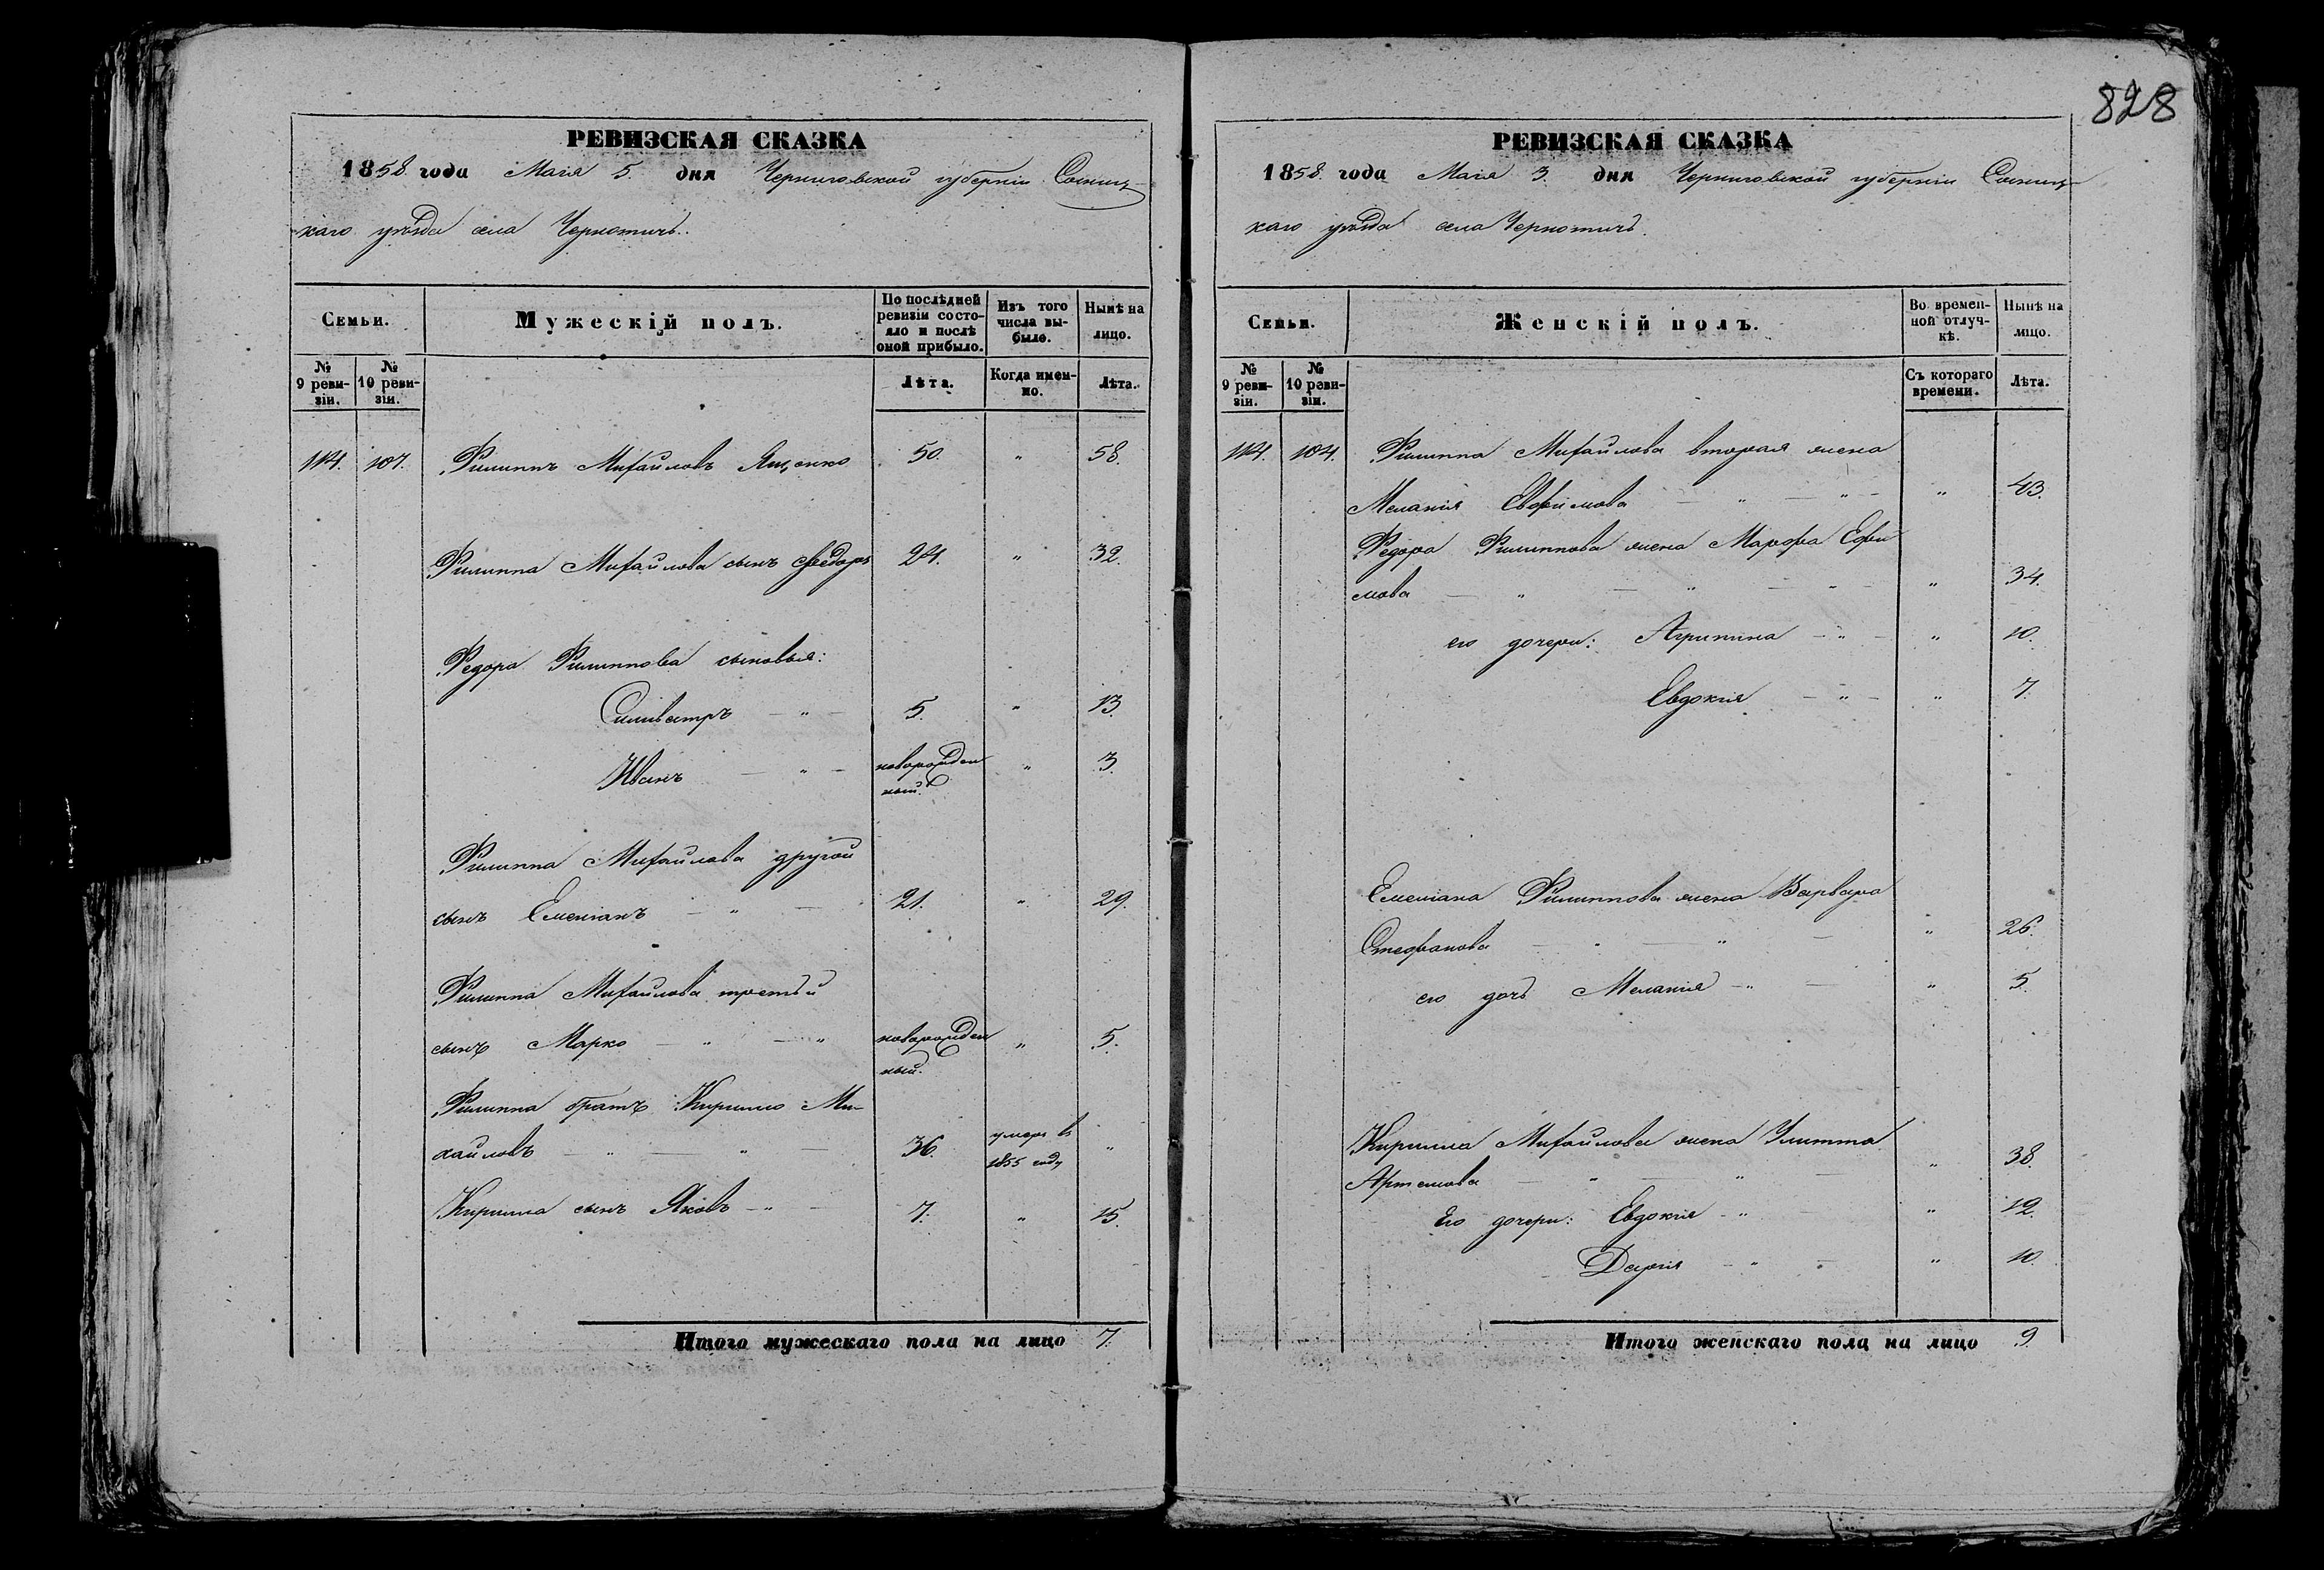 828
РЕВИЗСКАЯ СКАЗКА
1858. года Маія 5. дня Черниговской губерніи Сосниц-
каго уѣзда села Чернотичь.
Семьи.
Мужескій полъ.
По послѣдней ревизіи состо-яло и послѣ оной прибыло.
Изъ того числа вы-было.
Нынѣ на лицо.
№ 9 реви-зіи.
№ 10 реви-зіи.
Лѣта.
Когда имен-но.
Лѣта.
114. 107. Филиппъ Михайловъ Ященко 50. " 58.
Филиппа Михайлова сынъ Федоръ 24. " 32.
Федора Филиппова сыновья:
Силивестръ — " — 5. " 13.
Иванъ — " — новорожден ный. " 3.
Филиппа Михайлова другой
сынъ Емеліанъ — " — 21. " 29.
Филиппа Михайлова третьй
сынъ Марко — " — " новорожден ный. " 5.
Филиппа братъ Кирилло Ми-
хайловъ — " — " — 36. умеръ въ 1855 году "
Кирилла сынъ Яковъ — " — 7. " 15.
Итого мужескаго пола на лицо 7.
РЕВИЗСКАЯ СКАЗКА
1858. года Маія 3. дня Черниговской губерніи Сосниц-
каго уѣзда села Чернотичь.
Семьи.
Женскій полъ.
Во времен-ной отлуч-кѣ.
Нынѣ на лицо.
№ 9 реви-зіи.
№ 10 реви-зіи.
Съ котораго времени.
Лѣта.
114. 104. Филиппа Михайлова вторая жена
Меланія Евфимова — " — " — " 43.
Федора Филиппова жена Марфа Ефи
мова — " — " — " — " 34.
его дочери: Агрипина — " — " 10.
Евдокія — " — " 7.
Емеліана Филиппова жена Варвара
Стефанова — " — " — " 26.
его дочь Меланія — " — " 5.
Кирилла Михайлова жена Улитта
Артемова — " — " — " 38.
Его дочери: Евдокія — " — " 12.
Дарія — " — " 10.
Итого женскаго пола на лицо 9.